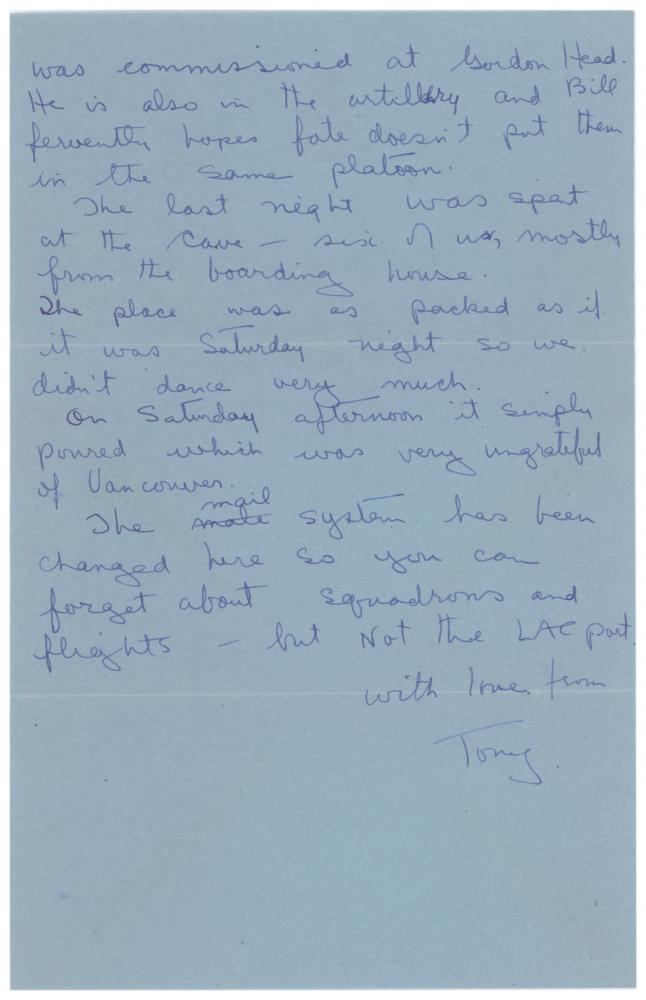 was commissioned at Gordon Head.
He is also in the artillery and Bill
fervently hopes fate doesn't put them
in the same platoon.
The last night was spent
at the Cave – six of us, mostly
from the boarding house.
The place was as packed as if
it was Saturday night so we
didn't dance very much.
On Saturday afternoon it simply
poured which was very ungrateful
of Vancouver.
mail
The system has been
changed here so you can
forget about squadrons and
flights – but Not the LAC part.
with love from
Tony.